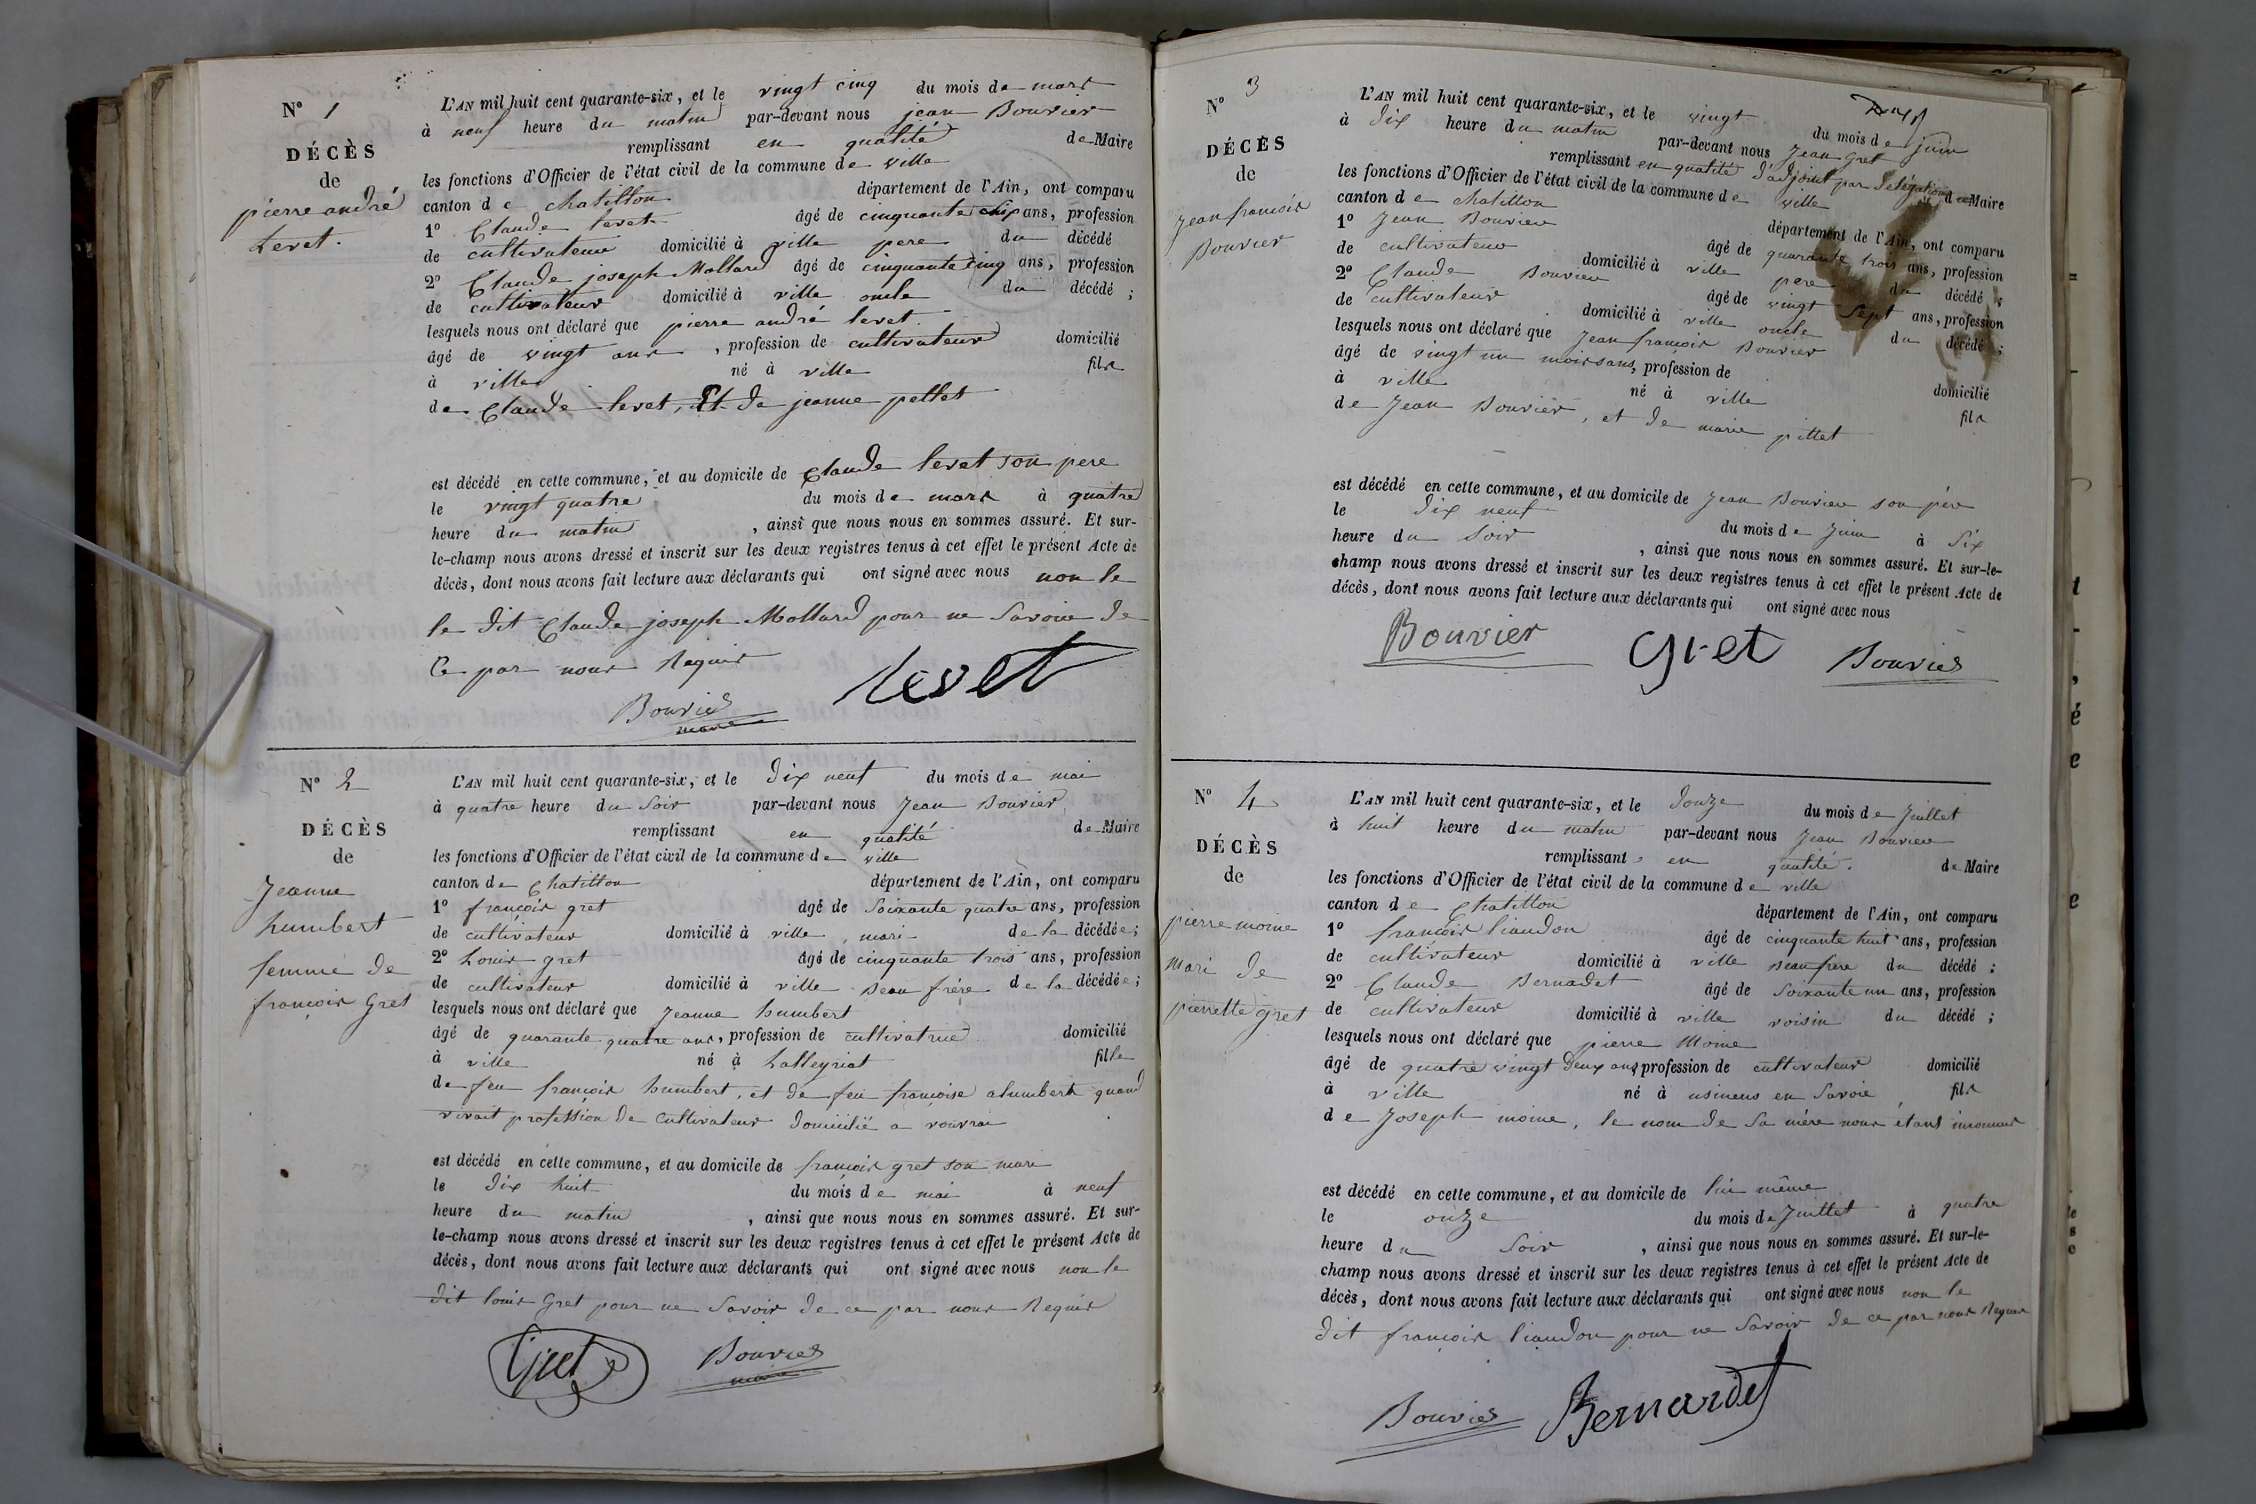 N° 1
DÉCÈS
de
pierre andré
Levet.
L'AN mil huit cent quarante-six, et le vingt cinq du mois de mars
à neuf heure du matin par-devant nous jean Bouvier
remplissant en qualité de Maire
les fonctions d'Officier de l'état civil de la commune de ville
canton de chatillon département de l'Ain, ont comparu
1° Claude levet âgé de cinquante ans, profession
de cultivateur domicilié à ville pere du décédé
2° Claude joseph Mollard âgé de cinquante cinq ans, profession
de cultivateur domicilié à ville oncle du décédé ;
lesquels nous ont déclaré que pierre andré levet
âgé de vingt ans , profession de cultivateur domicilié
à ville né à ville fils
de Claude levet, Et de jeanne pellet
est décédé en cette commune, et au domicile de Claude levet son pere
le vingt quatre du mois de mars à quatre
heure du matin , ainsi que nous nous en sommes assuré. Et sur-
le-champ nous avons dressé et inscrit sur les deux registres tenus à cet effet le présent Acte de
décès, dont nous avons fait lecture aux déclarants qui ont signé avec nous non le
le dit Claude joseph Mollard pour ne Savoir de
Ce par nous Requis
Bouvier levet
maire
N° 2
DÉCÈS
de
Jeanne
humbert
femme de
françois Gret
L'AN mil huit cent quarante-six, et le dix neuf du mois de mai
à quatre heure du soir par-devant nous Jean Bouvier
remplissant en qualité de Maire
les fonctions d'Officier de l'état civil de la commune de ville
canton de Chatillon département de l'Ain, ont comparu
1° françois gret âgé de Soixante quatre ans, profession
de cultivateur domicilié à ville mari de la décédée;
2° Louis gret âgé de cinquante trois ans, profession
de cultivateur domicilié à ville Beau frére de la décédée;
lesquels nous ont déclaré que Jeanne humbert
âgé de quarante quatre ans, profession de cultivatrice domicilié
à ville né à Lalleyriat fille
de feu françois humbert, et de feu françoise alumbert quand
vivait profession de Cultivateur domicilié a vouvrai
est décédé en cette commune, et au domicile de françois gret son mari
le dix huit du mois de mai à neuf
heure du matin , ainsi que nous nous en sommes assuré. Et sur-
le-champ nous avons dressé et inscrit sur les deux registres tenus à cet effet le présent Acte de
décès, dont nous avons fait lecture aux déclarants qui ont signé avec nous non le
dit louis Gret pour ne Savoir de ce par nous Requis
Gret Bouvier
maire
N° 3
DÉCÈS
de
Jean françois
Bouvier
L'AN mil huit cent quarante-six, et le vingt du mois de juin
à dix heure du matin par-devant nous Jean Gret
remplissant en qualité d'adjoint par délégation de Maire
les fonctions d'Officier de l'état civil de la commune de ville
canton de chatillon département de l'Ain, ont comparu
1° Jean Bouvier âgé de quarante trois ans, profession
de cultivateur domicilié à ville pere du décédé ;
2° Claude Bouvier âgé de vingt Sept ans, profession
de cultivateur domicilié à ville oncle du décédé ;
lesquels nous ont déclaré que Jean françois Bouvier
âgé de vingt un mois ans, profession de domicilié
à ville né à ville fils
de Jean Bouvier, et de marie pillet
est décédé en cette commune, et au domicile de Jean Bouvier son pére
le dix neuf du mois de Juin à Six
heure du Soir , ainsi que nous nous en sommes assuré. Et sur-le-
champ nous avons dressé et inscrit sur les deux registres tenus à cet effet le présent Acte de
décès, dont nous avons fait lecture aux déclarants qui ont signé avec nous
Bouvier Gret Bouvier
N° 4
DÉCÈS
de
pierre moine
Mari de
pierrette gret
L'AN mil huit cent quarante-six, et le Douze du mois de Juillet
à huit heure du matin par-devant nous Jean Bouvier
remplissant en qualité. de Maire
les fonctions d'Officier de l'état civil de la commune de ville
canton de Chatillon département de l'Ain, ont comparu
1° françois liaudon âgé de cinquante huit ans, profession
de cultivateur domicilié à ville Beau frere du décédé ;
2° Claude Bernadet âgé de Soixante un ans, profession
de cultivateur domicilié à ville voisin du décédé ;
lesquels nous ont déclaré que pierre Moine
âgé de quatre vingt deux ans profession de cultivateur domicilié
à ville né à usinens en Savoie , fils
de Joseph moine, le nom de Sa mère nous étant inconnue
est décédé en cette commune, et au domicile de lui même
le onze du mois de Juillet à quatre
heure du Soir , ainsi que nous nous en sommes assuré. Et sur-le-
champ nous avons dressé et inscrit sur les deux registres tenus à cet effet le présent Acte de
décès, dont nous avons fait lecture aux déclarants qui ont signé avec nous non le
dit françois liaudon pour ne Savoir de ce par nous Requis
Bouvier Bernardet